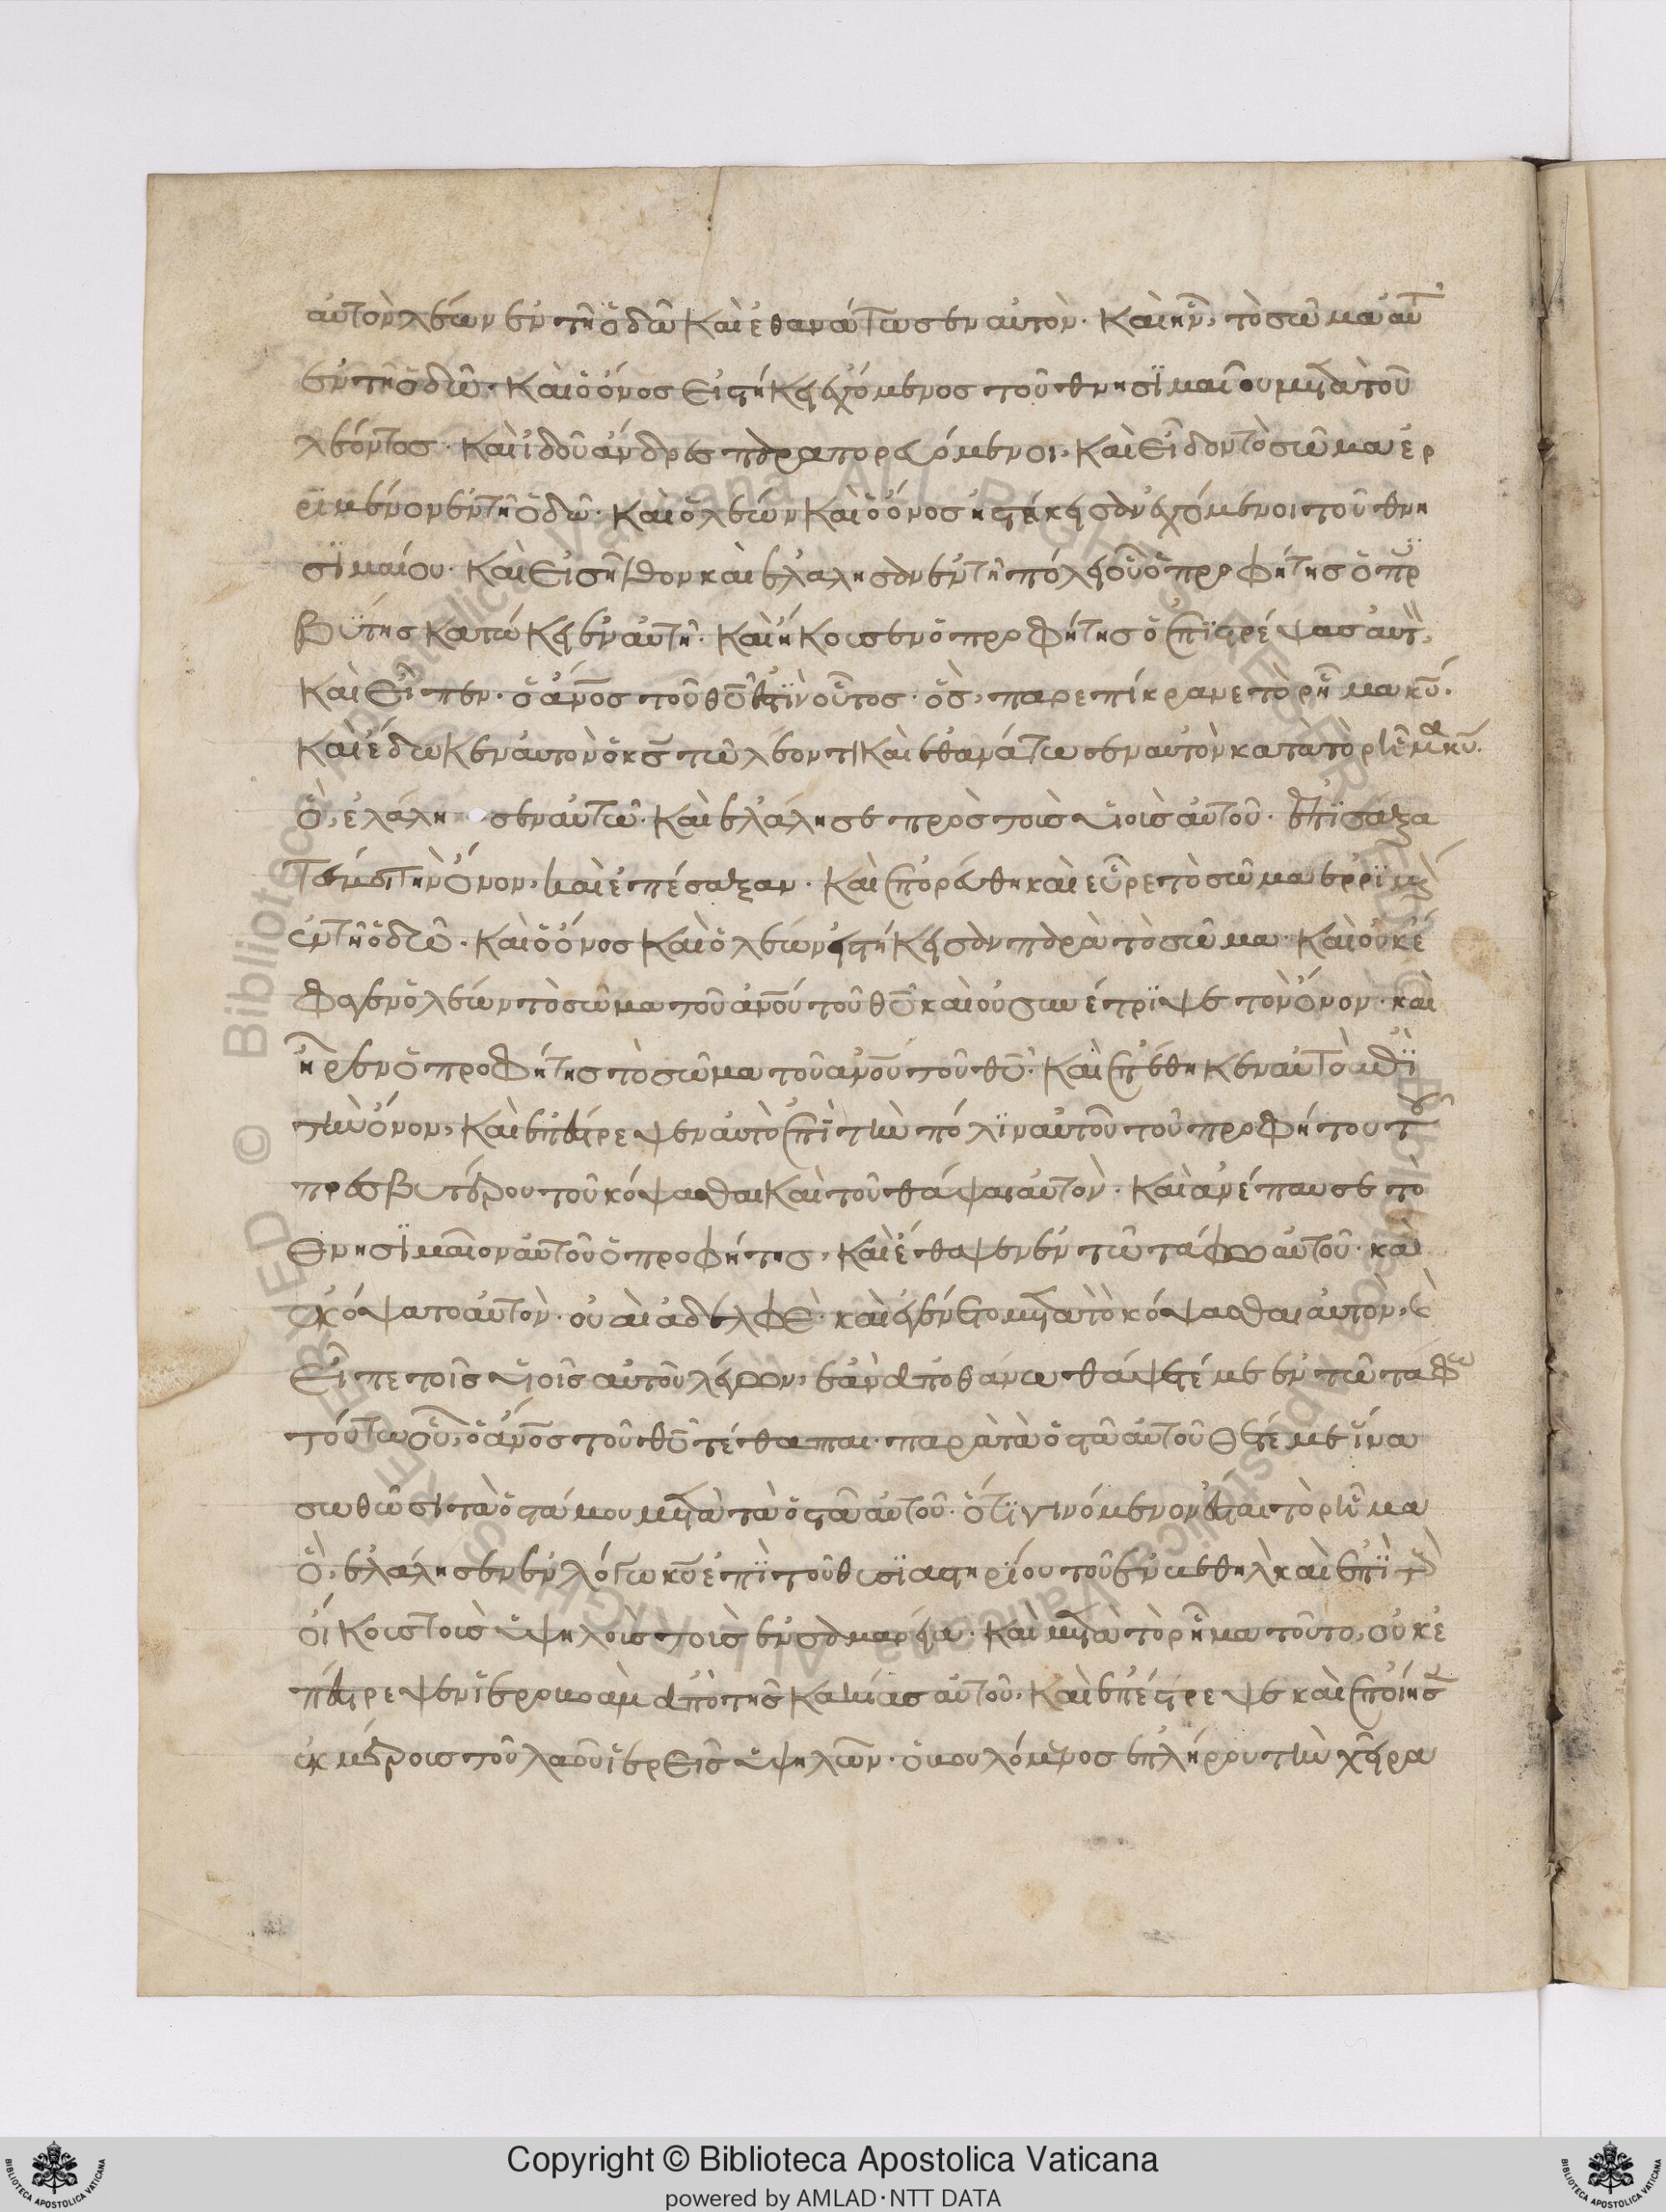 αὐτὸν λέων ἐν τῆ ὁδῶ καὶ ἐθανάτωσεν αὐτὸν· καὶ ἦν, τὸ σῶμα αὐτ
ἐν τῆ ὁδῶ· καὶ ὁ ὄνος εἰστήκει ἐχόμενος τοῦ θνησϊμαίου μετὰ τοῦ
λέοντος· καὶ ἰδοῦ ἄνδρες παραπορευόμενοι, καὶ εἶδον τὸ σῶμα ἐρ
ρϊμένον ἐν τῆ ὁδῶ· καὶ ὁ λέων καὶ ὁ ὄνος ἡστήκεισαν ἐχόμενοι τοῦ θνη
σϊμαίου· καὶ εἰσῆλθον καὶ ἐλάλησαν ἐν τῆ πόλει οὗ ὁ προφήτης ὁ πρ
βύτης κατώκει ἐν αὐτῆ· καὶ ἤκουσεν ὁ προφήτης ὁ ἐπϊστρέψας αὐτ,
καὶ εἶπεν· ὁ ἄνος τοῦ θυ ἐστϊν οὗτος· ὃς, παρεπίκρανε τὸ ρῆμα κυ·
καὶ ἔδωκεν αὐτὸν ὁ κς τῶ λέοντι καὶ ἐθανάτωσεν αὐτὸν κατὰ τὸ ρῆμα κυ·
ὃ, ἐλάλησεν αὐτῶ· καὶ ἐλάλησε πρὸς τοὺς υἱοὺς αὐτοῦ· ἐπϊσάξα
τέ μοι τὴν ὄνον, καὶ ἐπέσαξαν· καὶ ἐπορεύθη καὶ εὗρε τὸ σῶμα ἐρρϊμμ
ἐν τῆ ὁδῶ· καὶ ὁ ὄνος καὶ ὁ λέων εἱστήκεισαν παρὰ τὸ σῶμα· καὶ οὐκ ἔ
φαγεν ὁ λέων τὸ σῶμα τοῦ ἀνου τοῦ θυ καὶ οὐ συνέτρϊψε τὸν ὄνον· καὶ
ἦρεν ὁ προφήτης τὸ σῶμα τοῦ ἀνου τοῦ θυ· καὶ ἐπέθηκεν αὐτὸ ἐπϊ
τὴν ὄνον, καὶ ἐπέστρεψεν αὐτὸ ἐπὶ τὴν πόλϊν αὐτοῦ τοῦ προφήτου τ
πρεσβυτέρου τοῦ κόψασθαι καὶ τοῦ θάψαι αὐτὸν· καὶ ἀνέπαυσε τὸ
θνησϊμαῖον αὐτοῦ ὁ προφήτης, καὶ ἔθαψεν ἐν τῶ τάφω αὐτοῦ· καὶ
ἐκόψατο αὐτὸν· οὐαὶ ἀδελφὲ· καὶ ἐγένετο μετὰ τὸ κόψασθαι αὐτὸν, κ
εἶπε τοῖς υἱοῖς αὐτοῦ λέγων, ἐὰν ἀποθάνω θάψετέ με ἐν τῶ ταφω
τούτω οὗ, ὁ ἄνος τοῦ θυ τέθαπται· παρὰ τὰ ὀστᾶ αὐτοῦ θέτέ με ἵνα
σωθῶσι τὰ ὀστά μου μετὰ τὰ ὀστᾶ αὐτοῦ· ὅτϊ γινόμενον ἔσται τὸ ρῆμα
ὃ, ἐλάλησεν ἐν λόγω κυ ἐπὶ τοῦ θυσϊαστηρίου τοῦ ἐν βεθηλ καὶ ἐπϊ τ
οἴκους τοὺς ὑψηλοὺς τοὺς ἐν σαμαρεία· καὶ μετὰ τὸ ρῆμα τοῦτο, οὐκ ἐ
πέστρεψεν ἱεροβοὰμ ἀπὸ τῆς κακίας αὐτοῦ, καὶ ἐπέστρεψε καὶ ἐποίησ
ἐκ μέρους τοῦ λαοῦ ἱερεῖς ὑψηλῶν· ὁ βουλόμενος ἐπλήρου τὴν χεῖρα
Copyright © Biblioteca Apostolica Vaticana
powered by AMLAD·NTT DATA